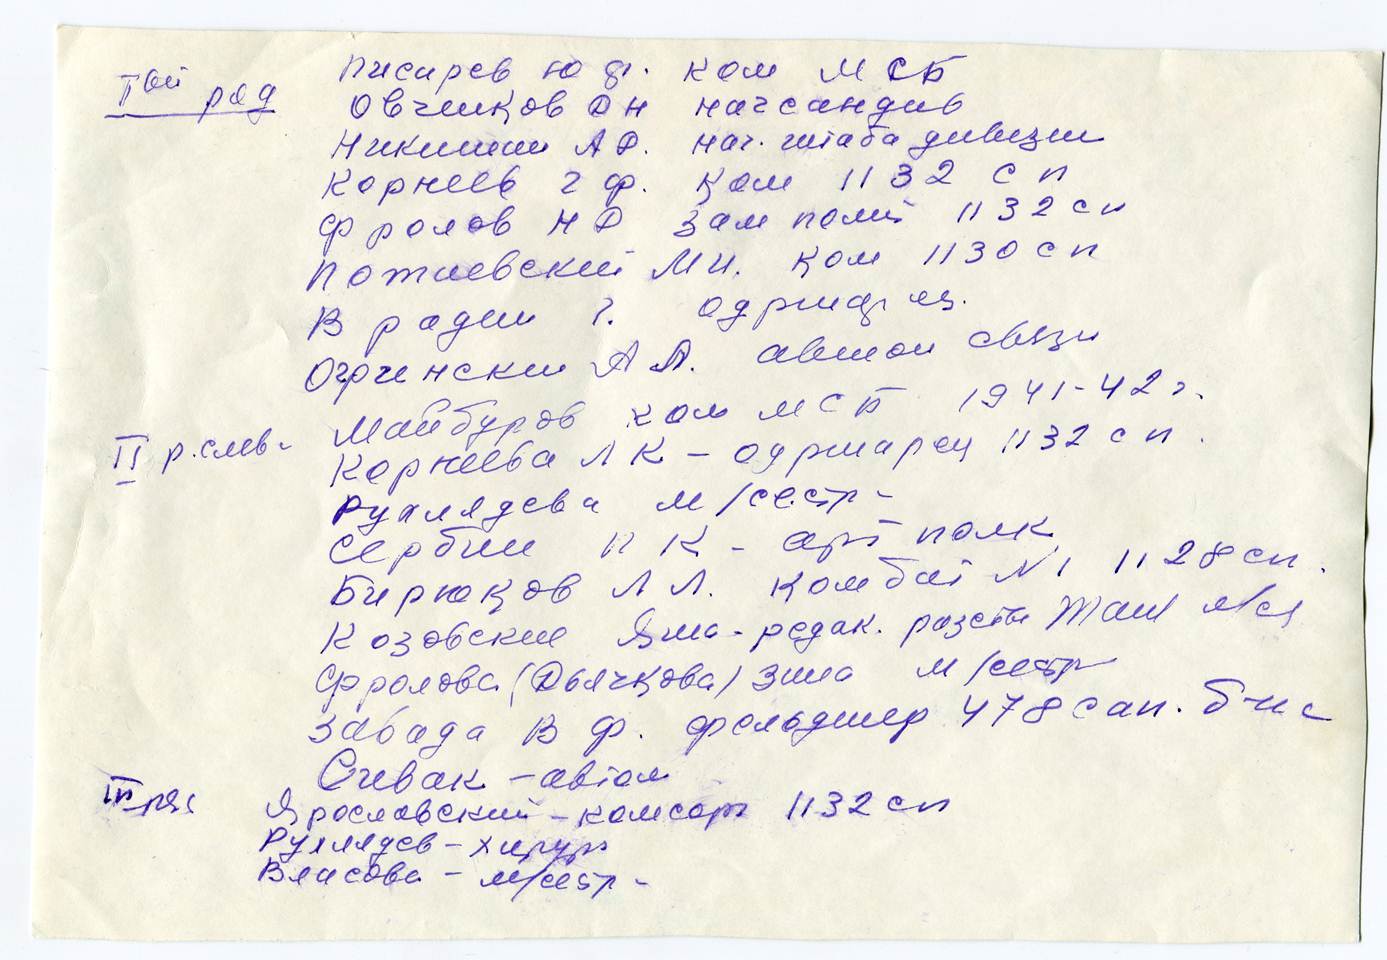 I ой ряд
Писарев Ю Ф. ком МСБ
Овчинков Д Н начсандив
Никишин А Д. нач. штаба дивизии
Корнеев Г Ф. ком 1132 сп
Фролов Н Д зам полит 1132 сп
М И. ком 1130 сп
В радин ?.
А Л. связи
II р. слев-
Майбуров ком МСБ 1941-42 г.
Корнеева Л К - 1132 сп.
Рухлядева м/сестр-
Сербин П К - арт полк
Бирюков Л Л. комбат №1 1128 сп.
Козовский Яша - редак.
Фролова (Дьячкова) Зина м/сестр
Завада В Ф. фельдшер 478 сап. б-н
Спивак -
III ряд
Ярославский - комсорг 1132 сп
Рухлядев - хирург
Власова - м/сестр-